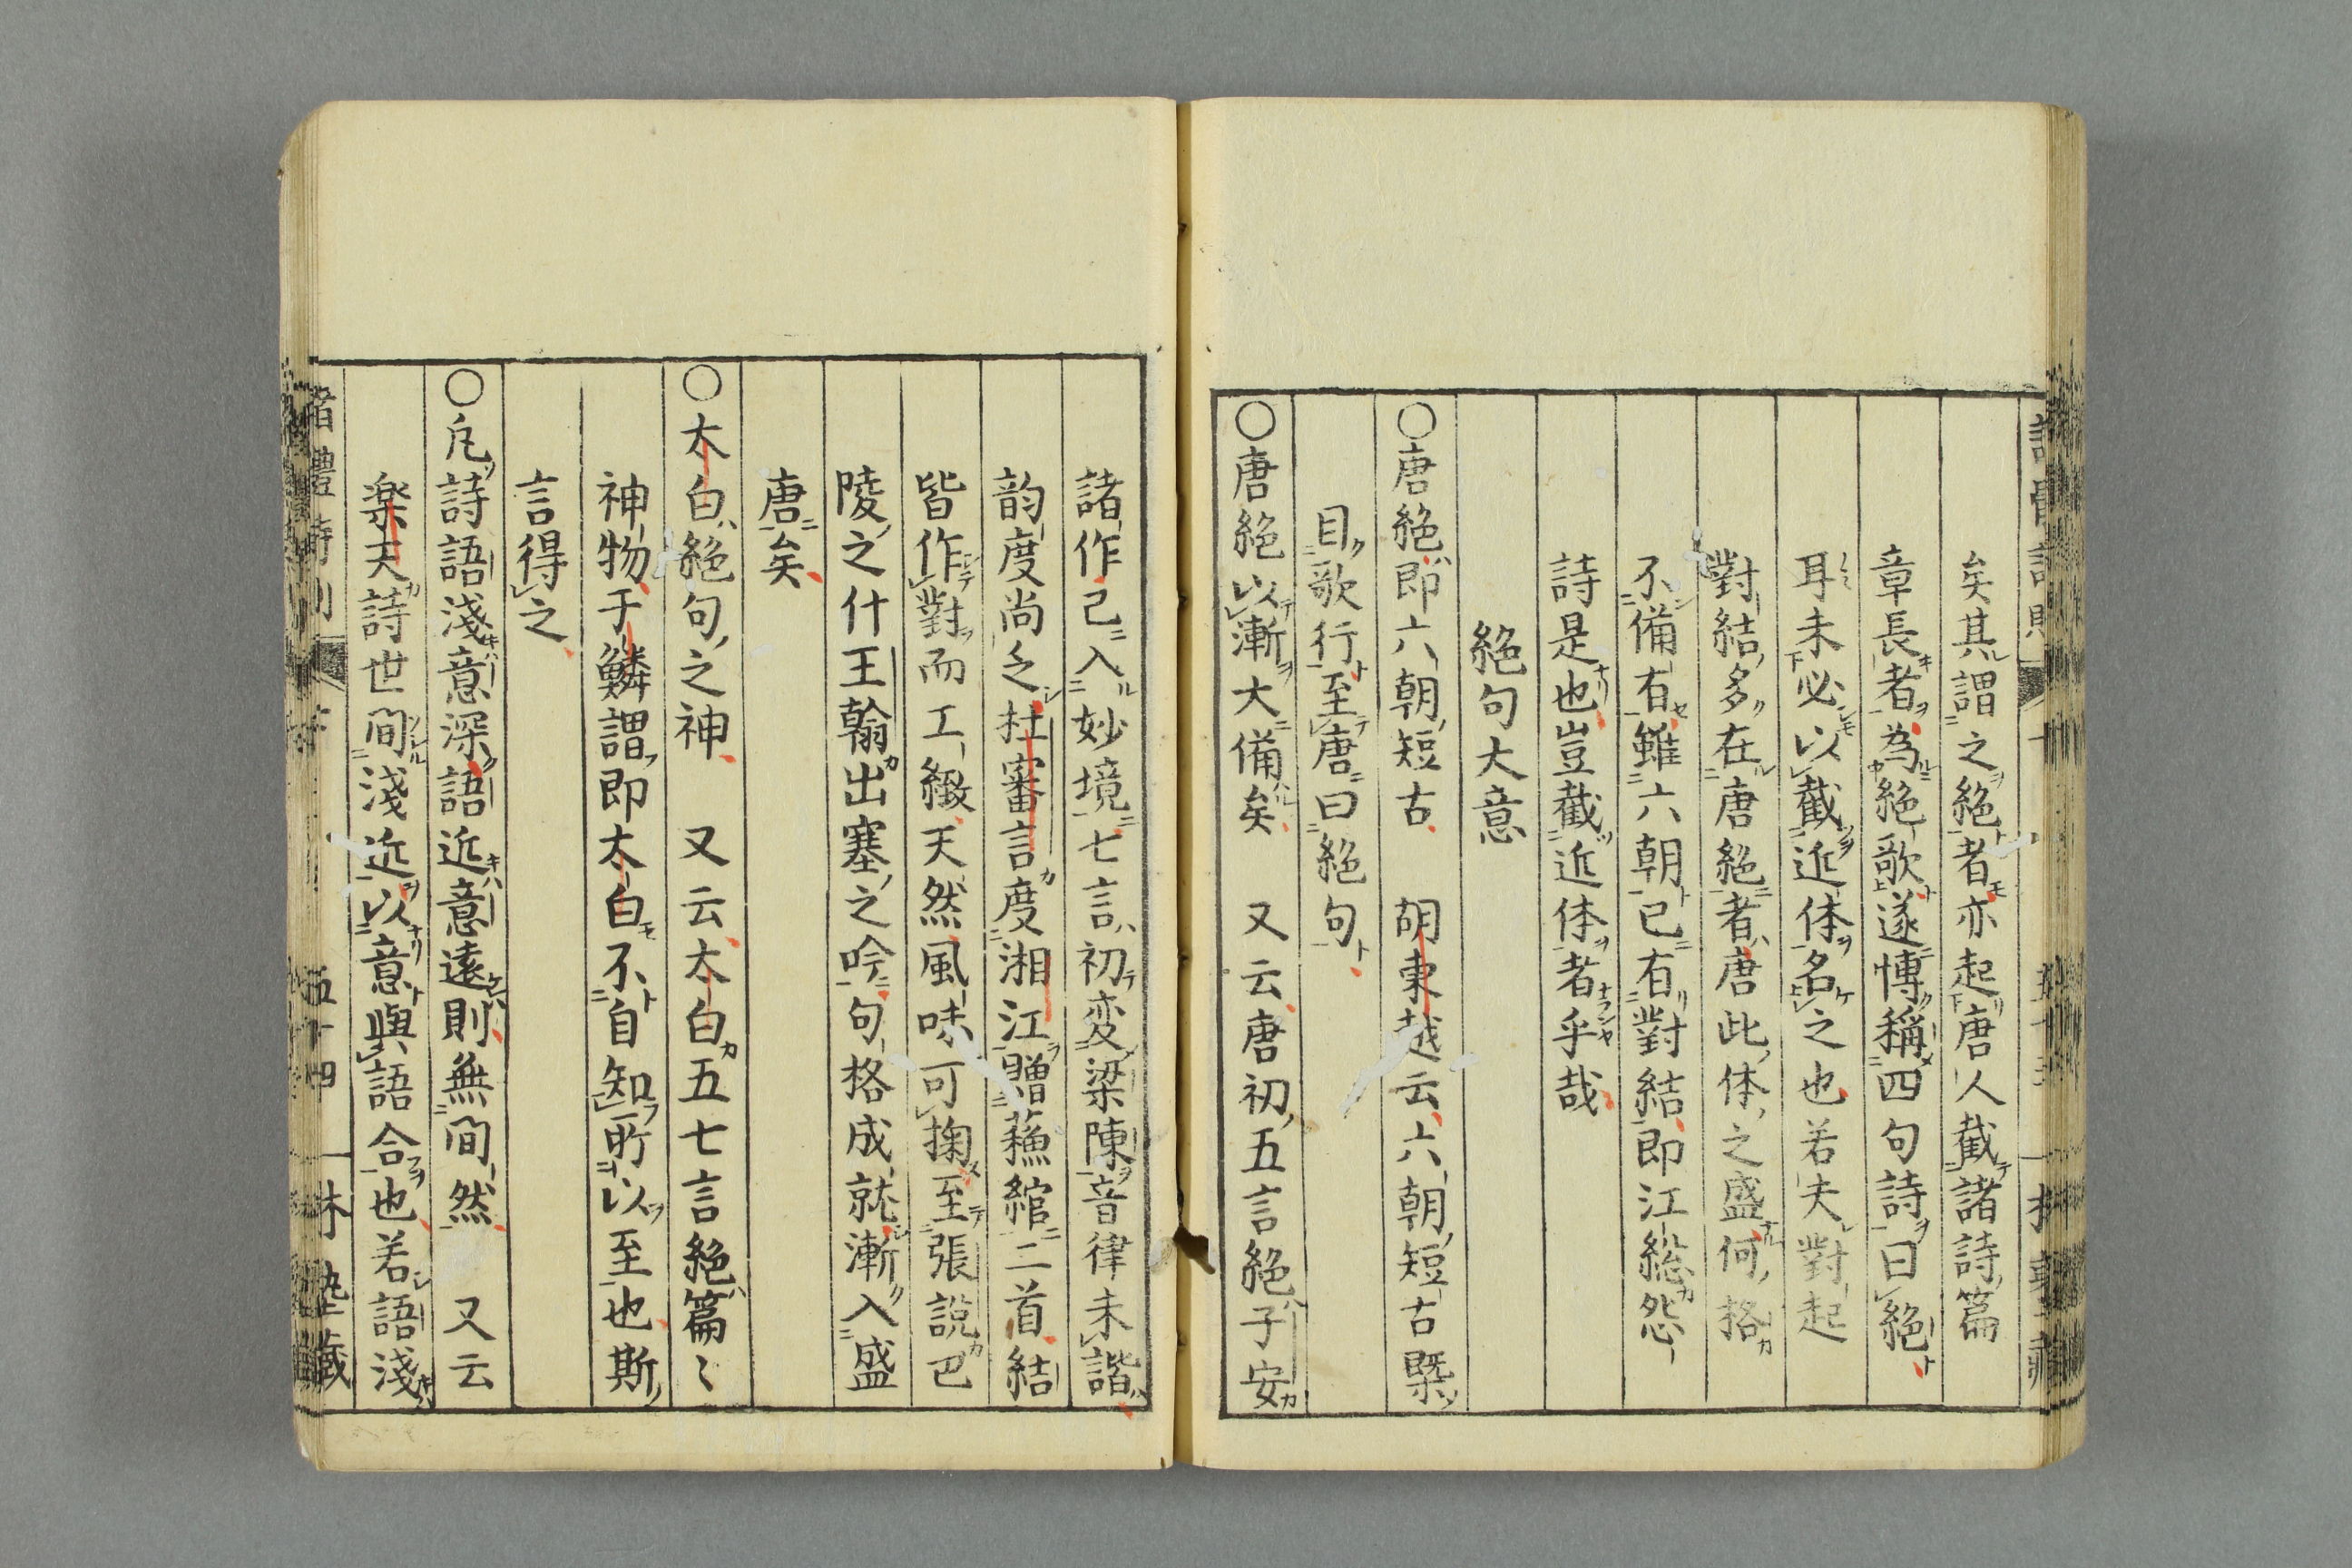 矣其謂之絶者亦起唐人截諸詩篇
章長者為絶歌遂博稱四句詩曰絶
耳未必以截近体名之也若夫對起
對結多在唐絶者唐此体之盛何格
不備有雖六朝已有對結即江総怨
詩是也豈截近体者乎哉
絶句大意
○唐絶即六朝短古 胡東越云六朝短古槩
目歌行至唐曰絶句
○唐絶以漸大備矣 又云唐初五言絶子安
諸作已入妙境七言初変梁陳音律未諧
韵度尚乏杜審言度湘江贈蘓綰二首結
皆作對而工緻天然風味可掬至張說巴
陵之什王翰出塞之吟句格成就漸入盛
唐矣
○太白絶句之神 又云太白五七言絶篇〻
神物于鱗謂即太白不自知所以至也斯
言得之
○凢詩語淺意深語近意遠則無間然 又云
楽天詩世間淺近以意與語合也若語淺
諸體詩則 下 五十四 林塾藏